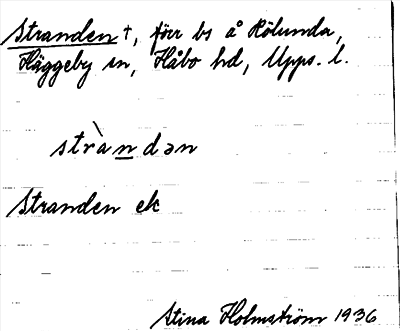 Stranden †, förr bs å Kölunda,
Häggeby sn, Håbo hd, Upps. l.
stràndən
Stranden ek
Stina Holmström 1936